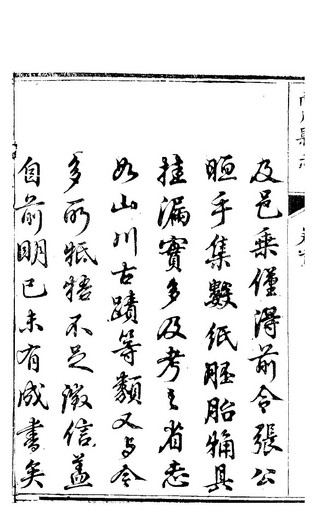 及邑乘僅得前令張公
手集數紙胚胎觕具
挂漏實多及考之省志
如山川古蹟等類又与今
多所牴牾不足徵信蓋
自前明已未有成書矣